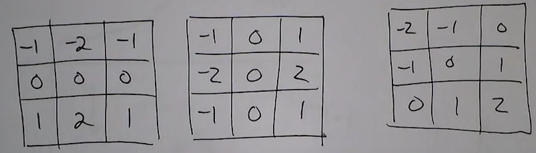 -1 -2 -1
0 0 0
1 2 1
-1 0 1
-2 0 2
-1 0 1
-2 -1 0
-1 0 1
0 1 2